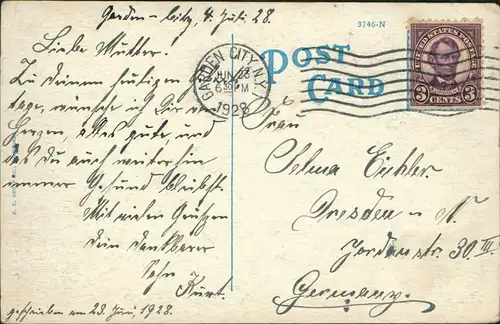 Garden-City, 4. Juli 28.
Liebe Mutter.
Zu deinem heutigen
tage, wünsche ich Dir von
Herzen, alles gute, und
das Du auch weiterhin
immer Gesund bleibst.
Mit vielen Grüßen
Dein dankbarer
Sohn
Kurt.
geschrieben am 23. Juni, 1928.
3746-N
POST
CARD
GARDEN CITY N.Y.
JUN 23
6 30 PM
1928
UNITED STATES POSTAGE
3 CENTS 3
Frau
Selma Eichler
Dresden - N.
Jordanstr. 30 III
Germany.